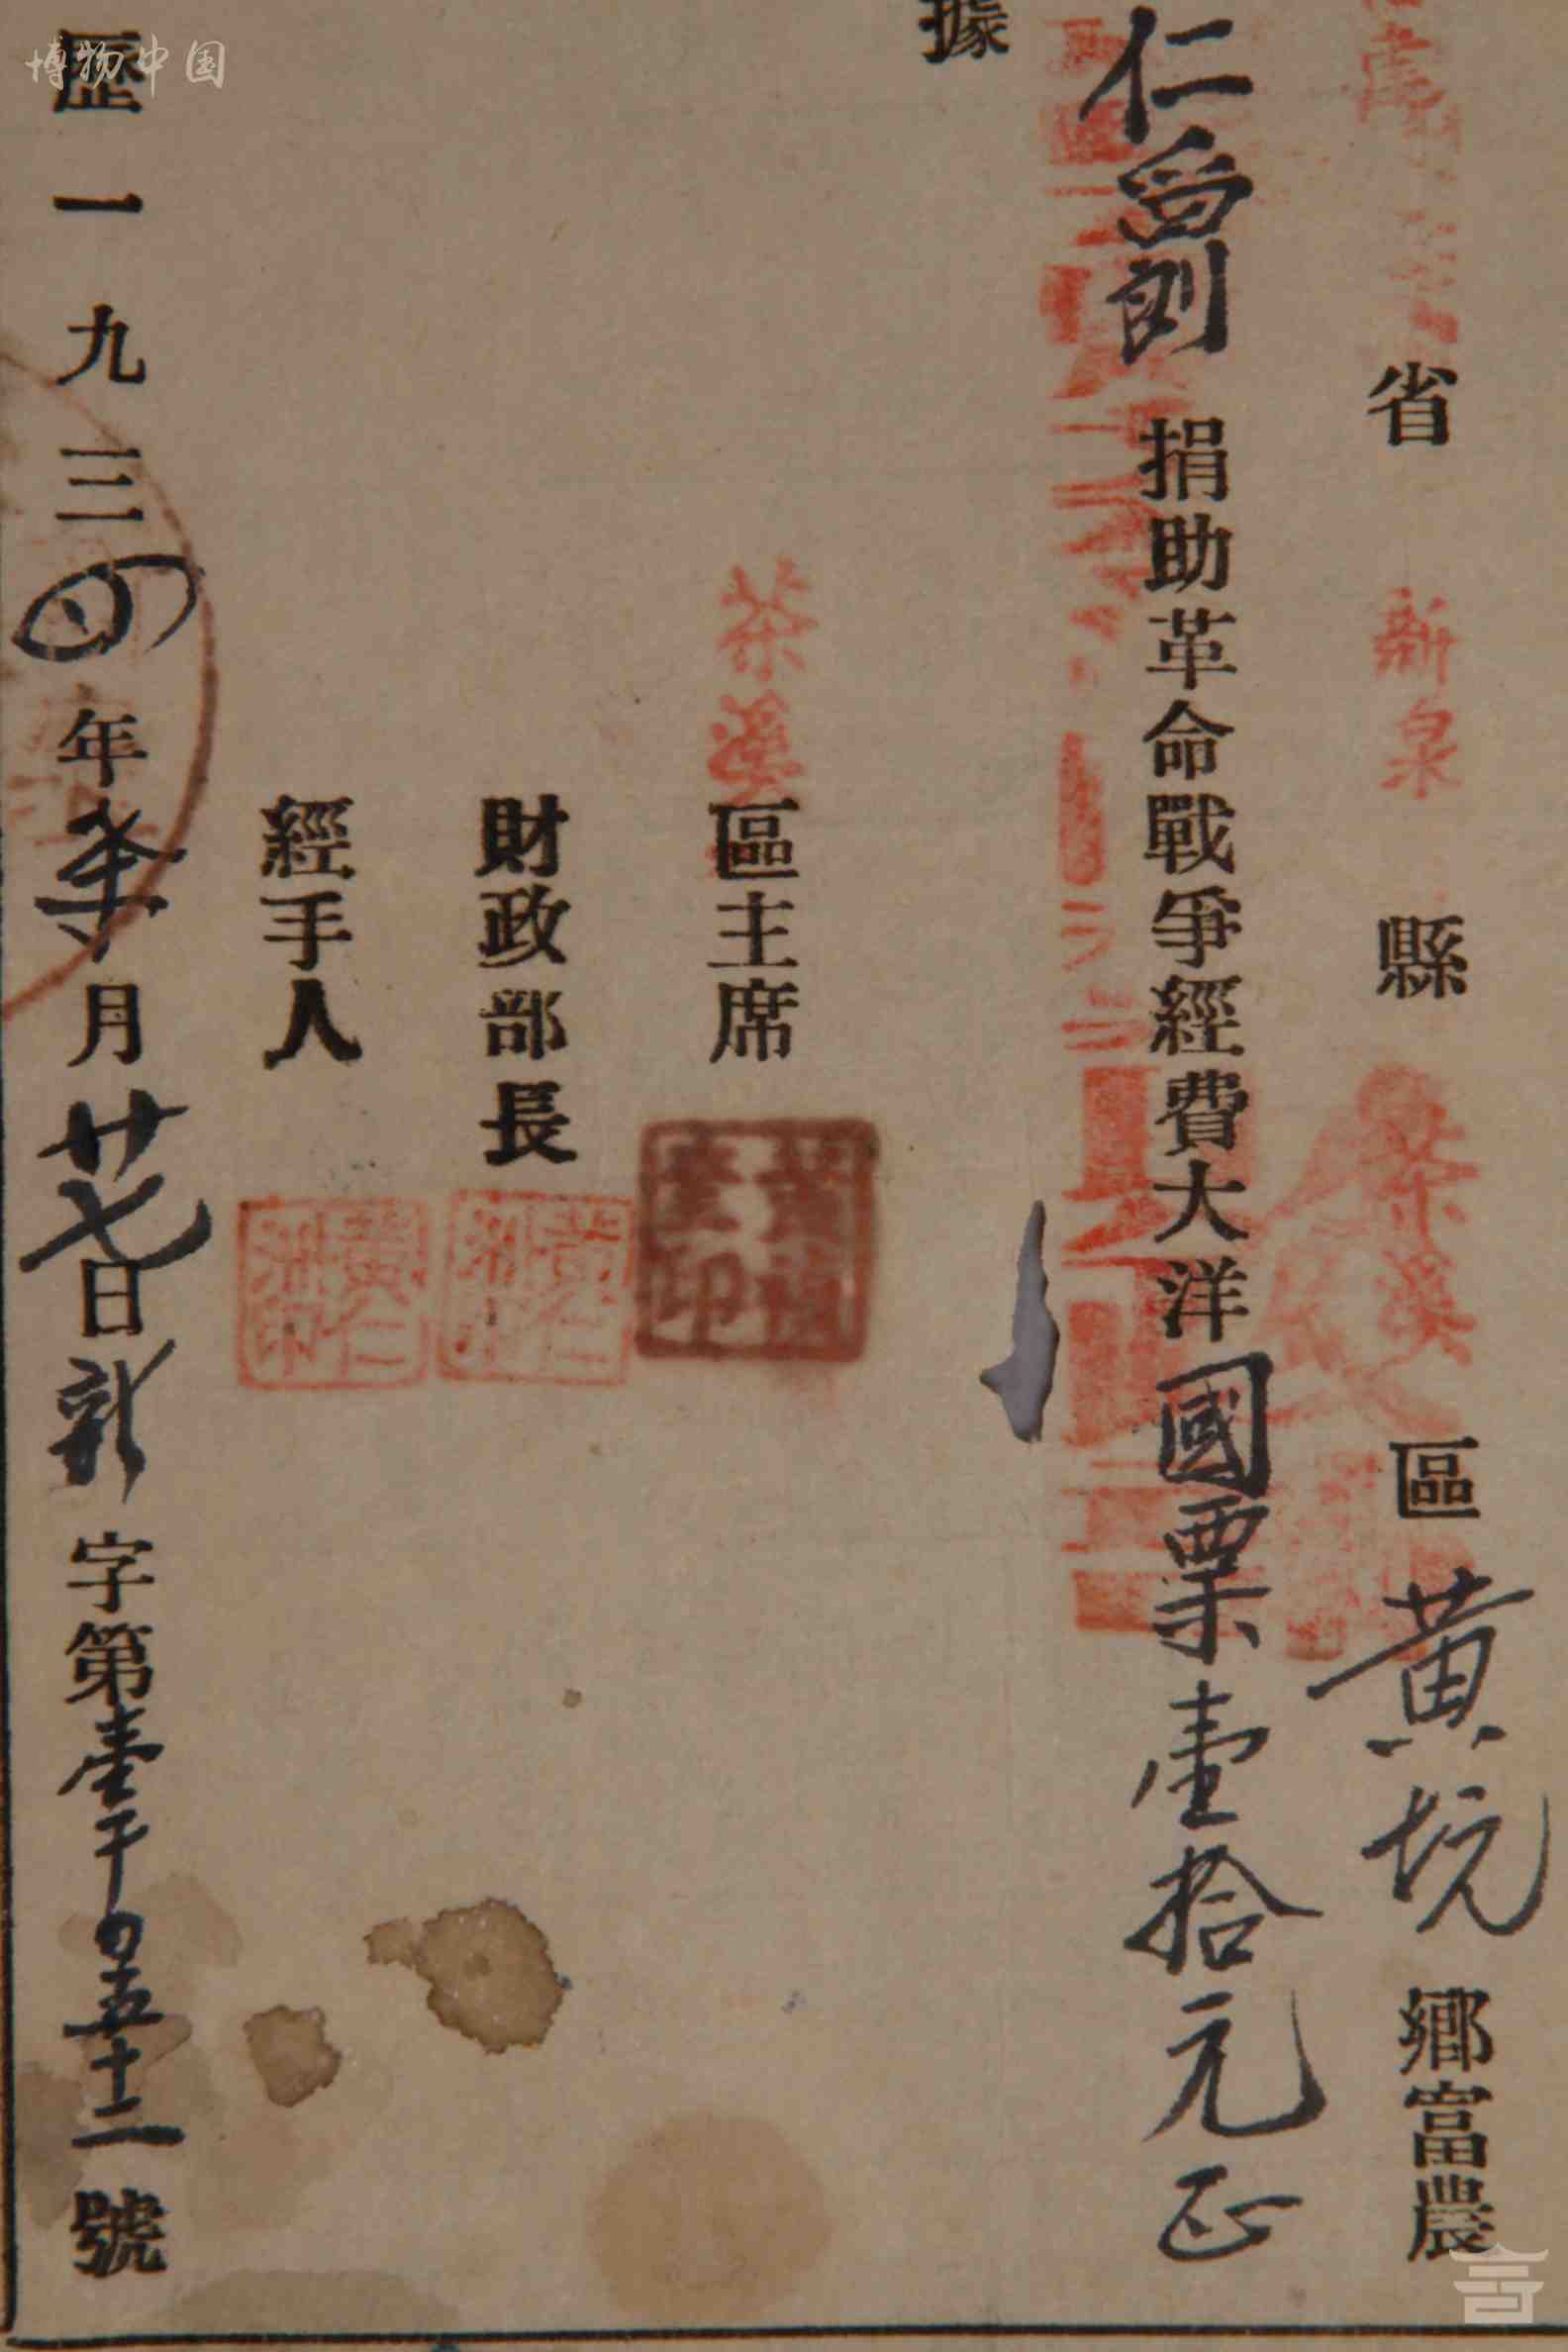 省 新泉 縣 茶溪 區 黃坑 鄉富農
仁 捐助革命戰爭經費大洋國票壹拾元正
據
茶溪 區主席
財政部長 黃仁洲印
經手人 黃仁洲印
歷一九三四年 月廿七日新字第壹千0五十二號
博物中国